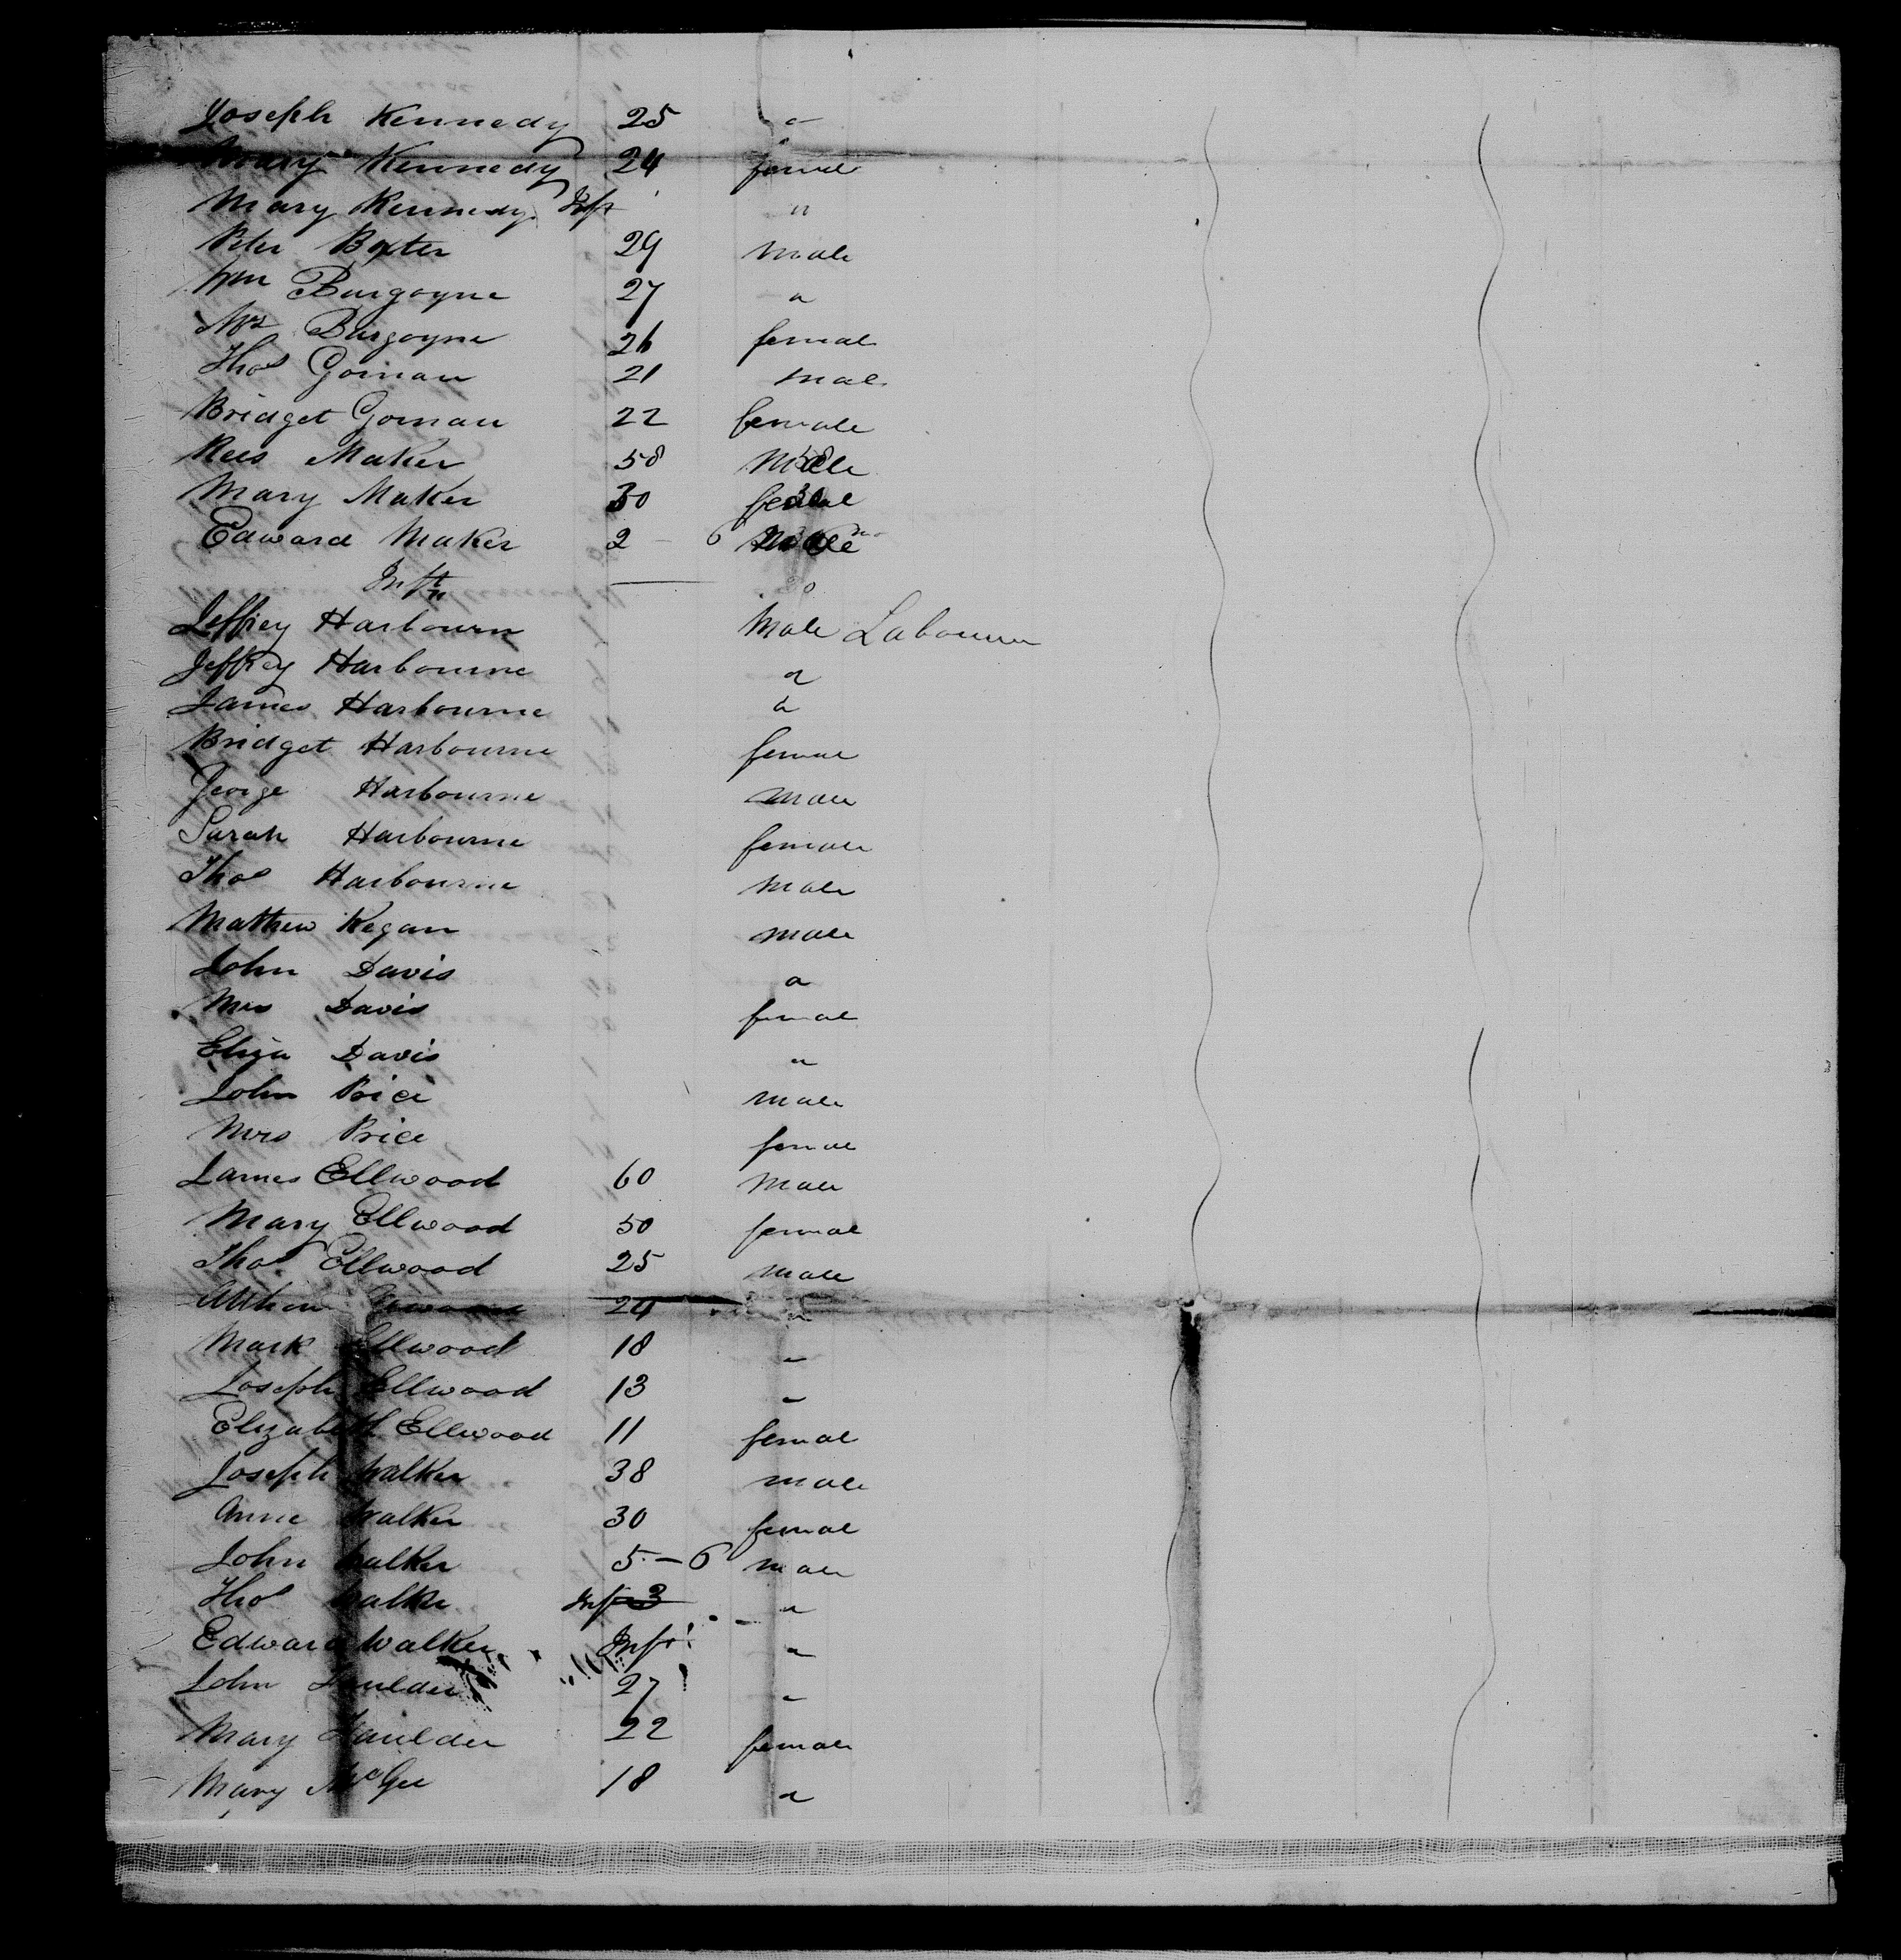 Joseph Kennedy 25 "
Mary Kennedy 24 female
Mary Kennedy Inft "
Peter Baxter 29 male
Wm Burgoyne 27 "
Mrs Burgoyne 26 female
Thos Gornan 21 male
Bridget Gornan 22 female
Rees Maker 58 Male
Mary Maker 30 female
Edward Maker 2 - 6 Male
Inft
Jeffrey Harbourn Male Labourer
Jeffrey Harbourne "
James Harbourne "
Bridget Harbourne female
George Harbourne male
Sarah Harbourne female
Thos Harbourne male
Mathew Kegan male
John Davis "
Mrs Davis female
Eliza Davis "
John Price male
Mrs Price female
James Ellwood 60 Male
Mary Ellwood 50 female
Thos Ellwood 25 male
24 "
Mark Ellwood 18 "
Joseph Ellwood 13 "
Elizabeth Ellwood 11 female
Joseph Walker 38 male
Anne Walker 30 female
John Walker 5 - 6 male
Thos Walker Inft 3 "
Edward Walker Inft "
John 27 "
Mary 22 female
Mary McGee 18 "